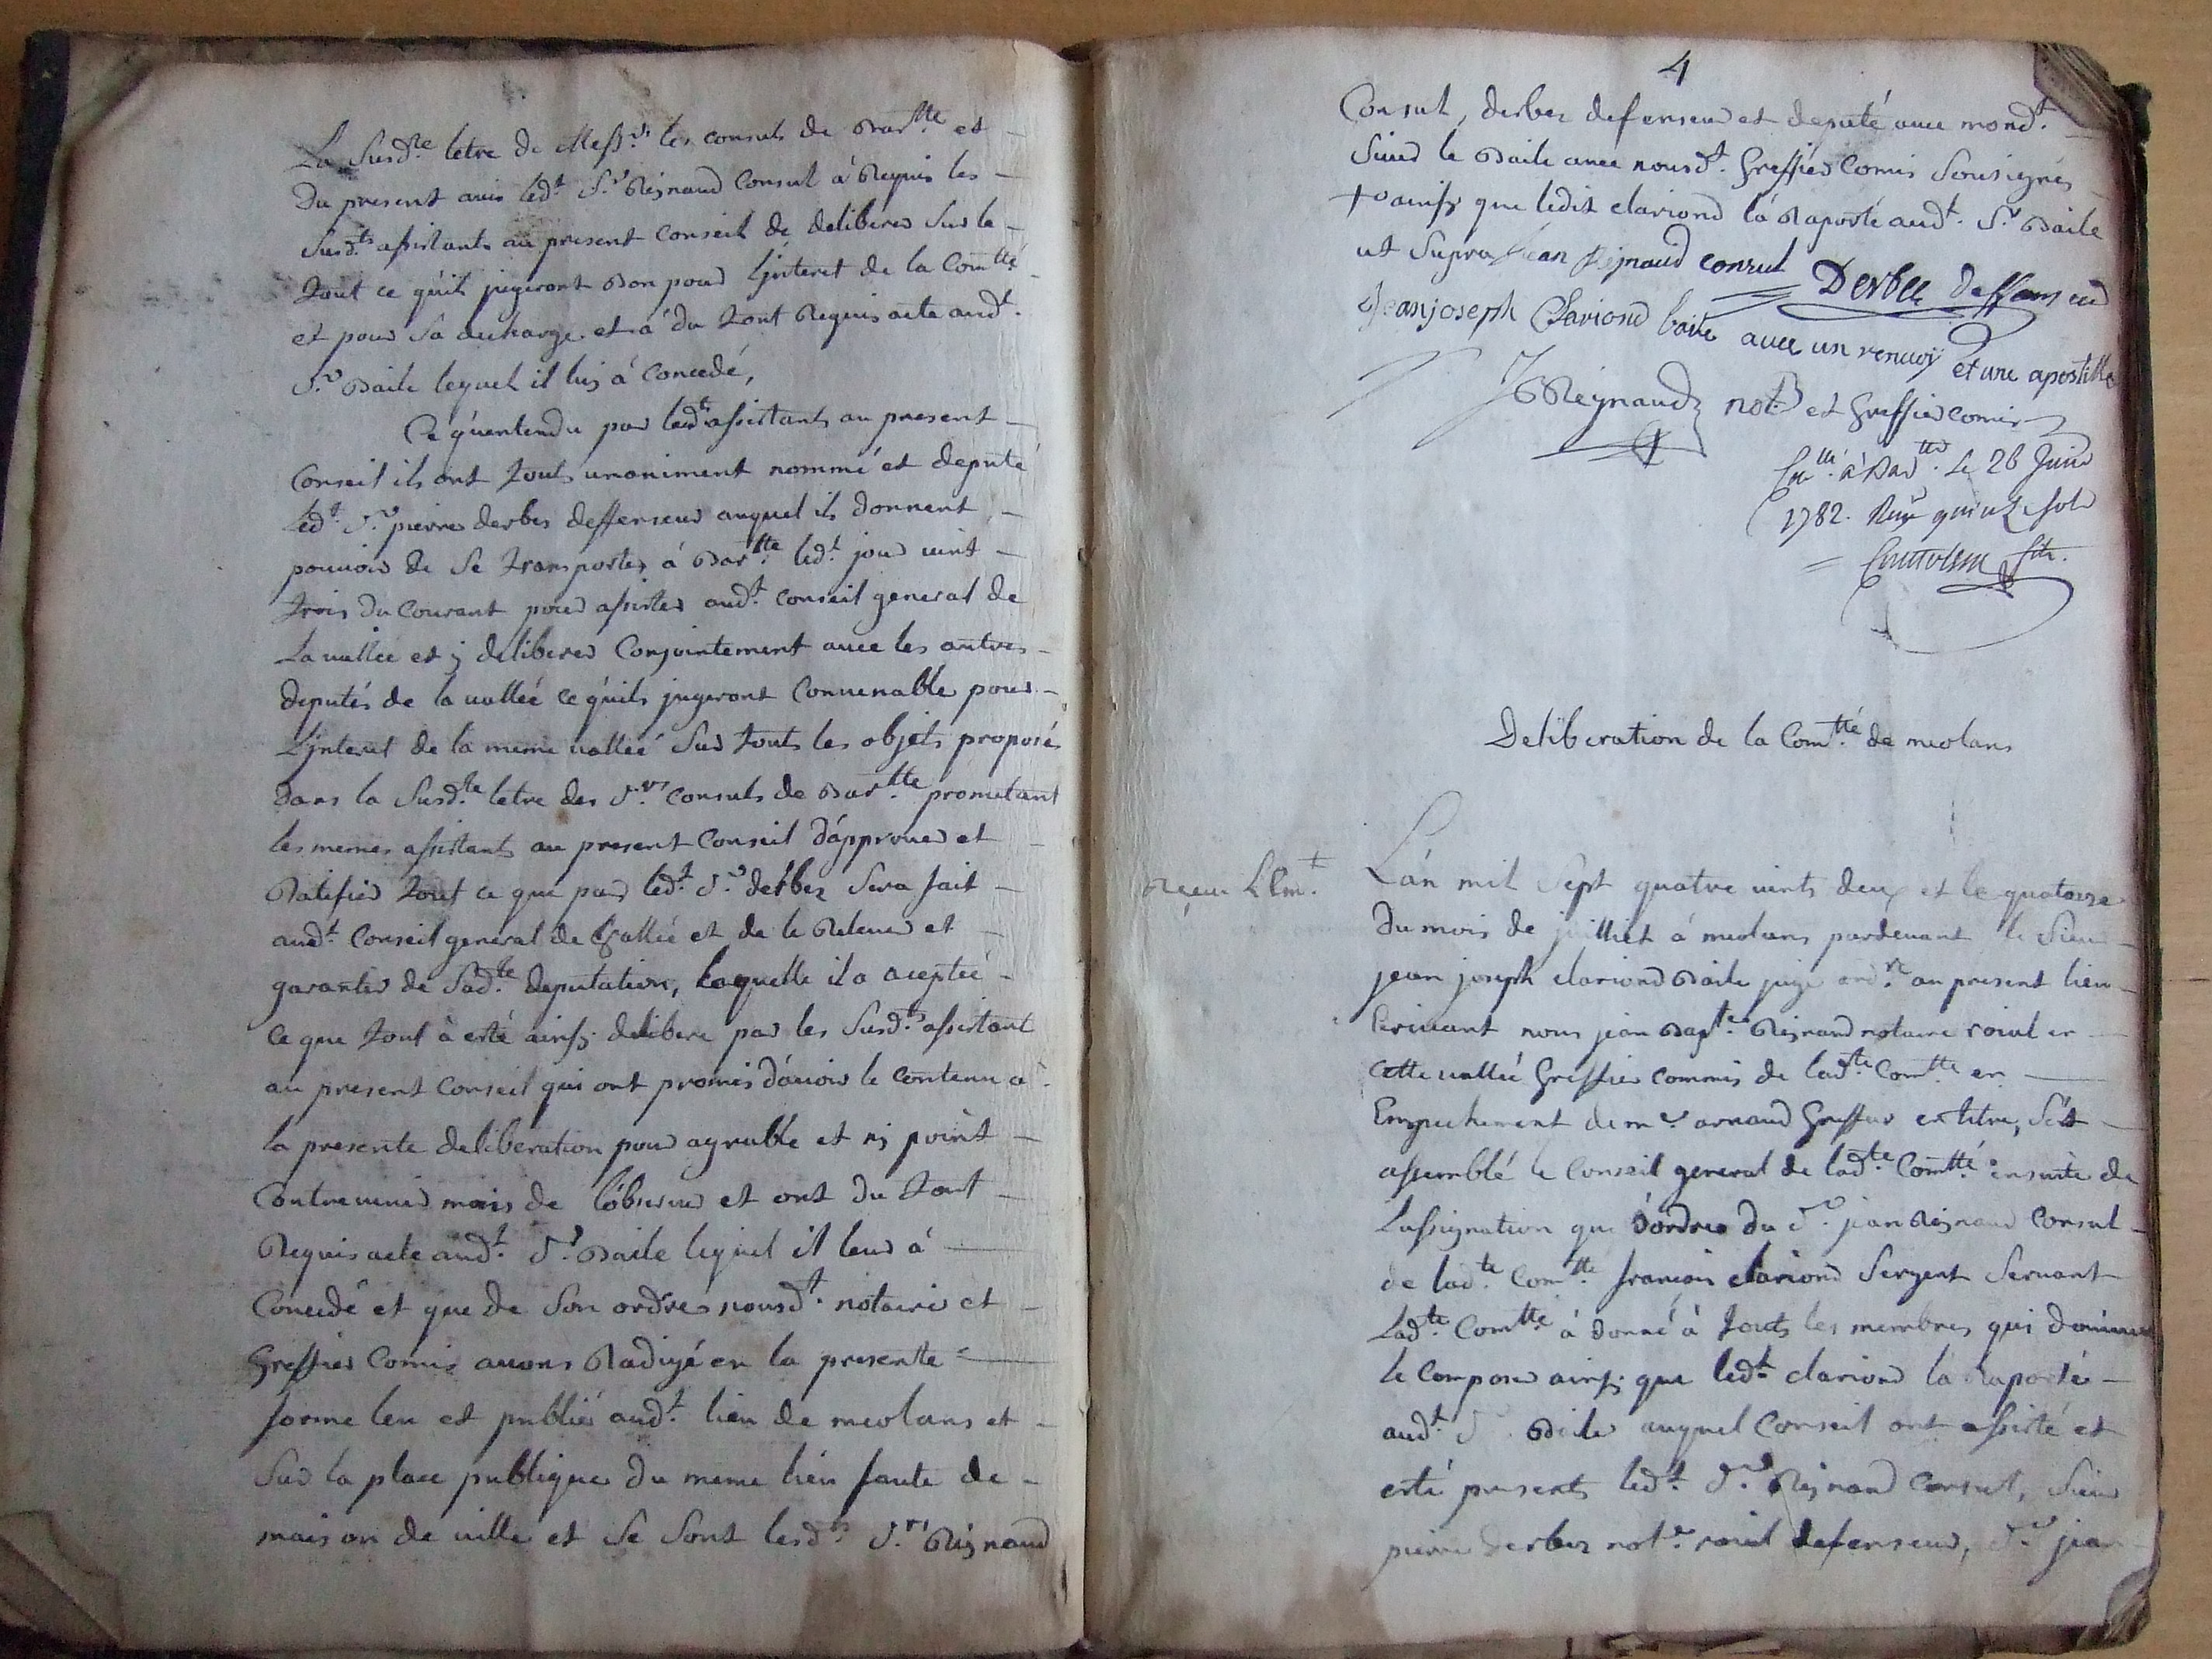 La susd.te letre de Mess.rs les consuls de Bar.tte et
du present avis led.t S.r Reynaud Consul à Requis les
susd.ts assistants au present Conseil de deliberer sur le
tout ce qu'ils jugeront Bon pour L'jnteret de la Com.tté
et pour sa decharge et à du tout Requis acte aud.t
S.r Baile lequel il luy à Concedé,
Ce qu'entendu par lesd.ts assistants au present
Conseil ils ont touts unaniment nommé et deputé
led.t S.r pierre derbes deffenseur auquel ils donnent
pouvoir de se transporter à Bar.tte led.t jour vint
trois du Courant pour assister aud.t Conseil general de
La vallée et y deliberer Conjointement avec les autres
deputés de la vallée ce qu'ils jugeront Convenable pour
L'jnteret de la meme vallée sur touts les objets proposés
dans la susd.te letre des S.rs Consuls de Bar.tte prometant
les memes assistants au present Conseil d'approuver et
Ratifier tout ce que par led.t S.r derbez sera fait
aud.t Conseil general de vallée et de le Relever et
garantir de sad.te deputation, laquelle il a aceptée
ce que tout à esté ainsy delibere par les susd.ts assistant
au present Conseil qui ont promis d'avoir le Contenu a
la presente deliberation pour agreable et ny point
Contrevenir mais de l'observer et ont du tout
Requis acte aud.t S.r Baile lequel il leur à
Concedé et que de son ordre nousd.t notaire et
Greffier Comis avons Radigé en la presente
forme leu et publié aud.t lieu de meolans et
sur la place publique du meme lieu faute de
maison de ville et se sont lesd.ts S.rs Reynaud
4
Consul, derbez defenseur et deputé avec mond.t
Sieur le Baile avec nousd.t Greffier Comis Sousignés
+ ainsy que ledit clariond la Raporté aud.t S.r Baile
ut Supra jean Reynaud consul Derbez deffenseur
Jeanjoseph Clariond baile avec un renvoÿ et une apostille
JB Reynaud not.e et Greffier comis
à Bar.tte le 26 Juin
1782. Reçu quinze sols
Deliberation de la Com.tté de meolans
L'án mil sept quatre vints deux et le quatorze
du mois de juilliet à meolans pardevant le Sieur
jean joseph clariond Baile juge ord.re au present lieu
Ecrivant nous jean Bap.te Reynaud notaire roial en
cette vallée Greffier commis de lad.te Com.tte en
Empechement de m.e arnaud Greffier en titre, s'est
assemblé le Conseil general de lad.te Com.tté ensuite de
Lassignation que d'ordre du S.r jean Reynaud Consul
de lad.te Com.tte françois clariond Sergent Servant
Lad.te Com.tte à donné à touts les membres qui doivent
le Composer ainsy que led.t clariond la Raporté
aud.t S.r Baile auquel Conseil ont assisté et
esté presents led.t S.r Reynaud Consul, Sieur
pierre derbez not.e roial defenseur, S.r jean